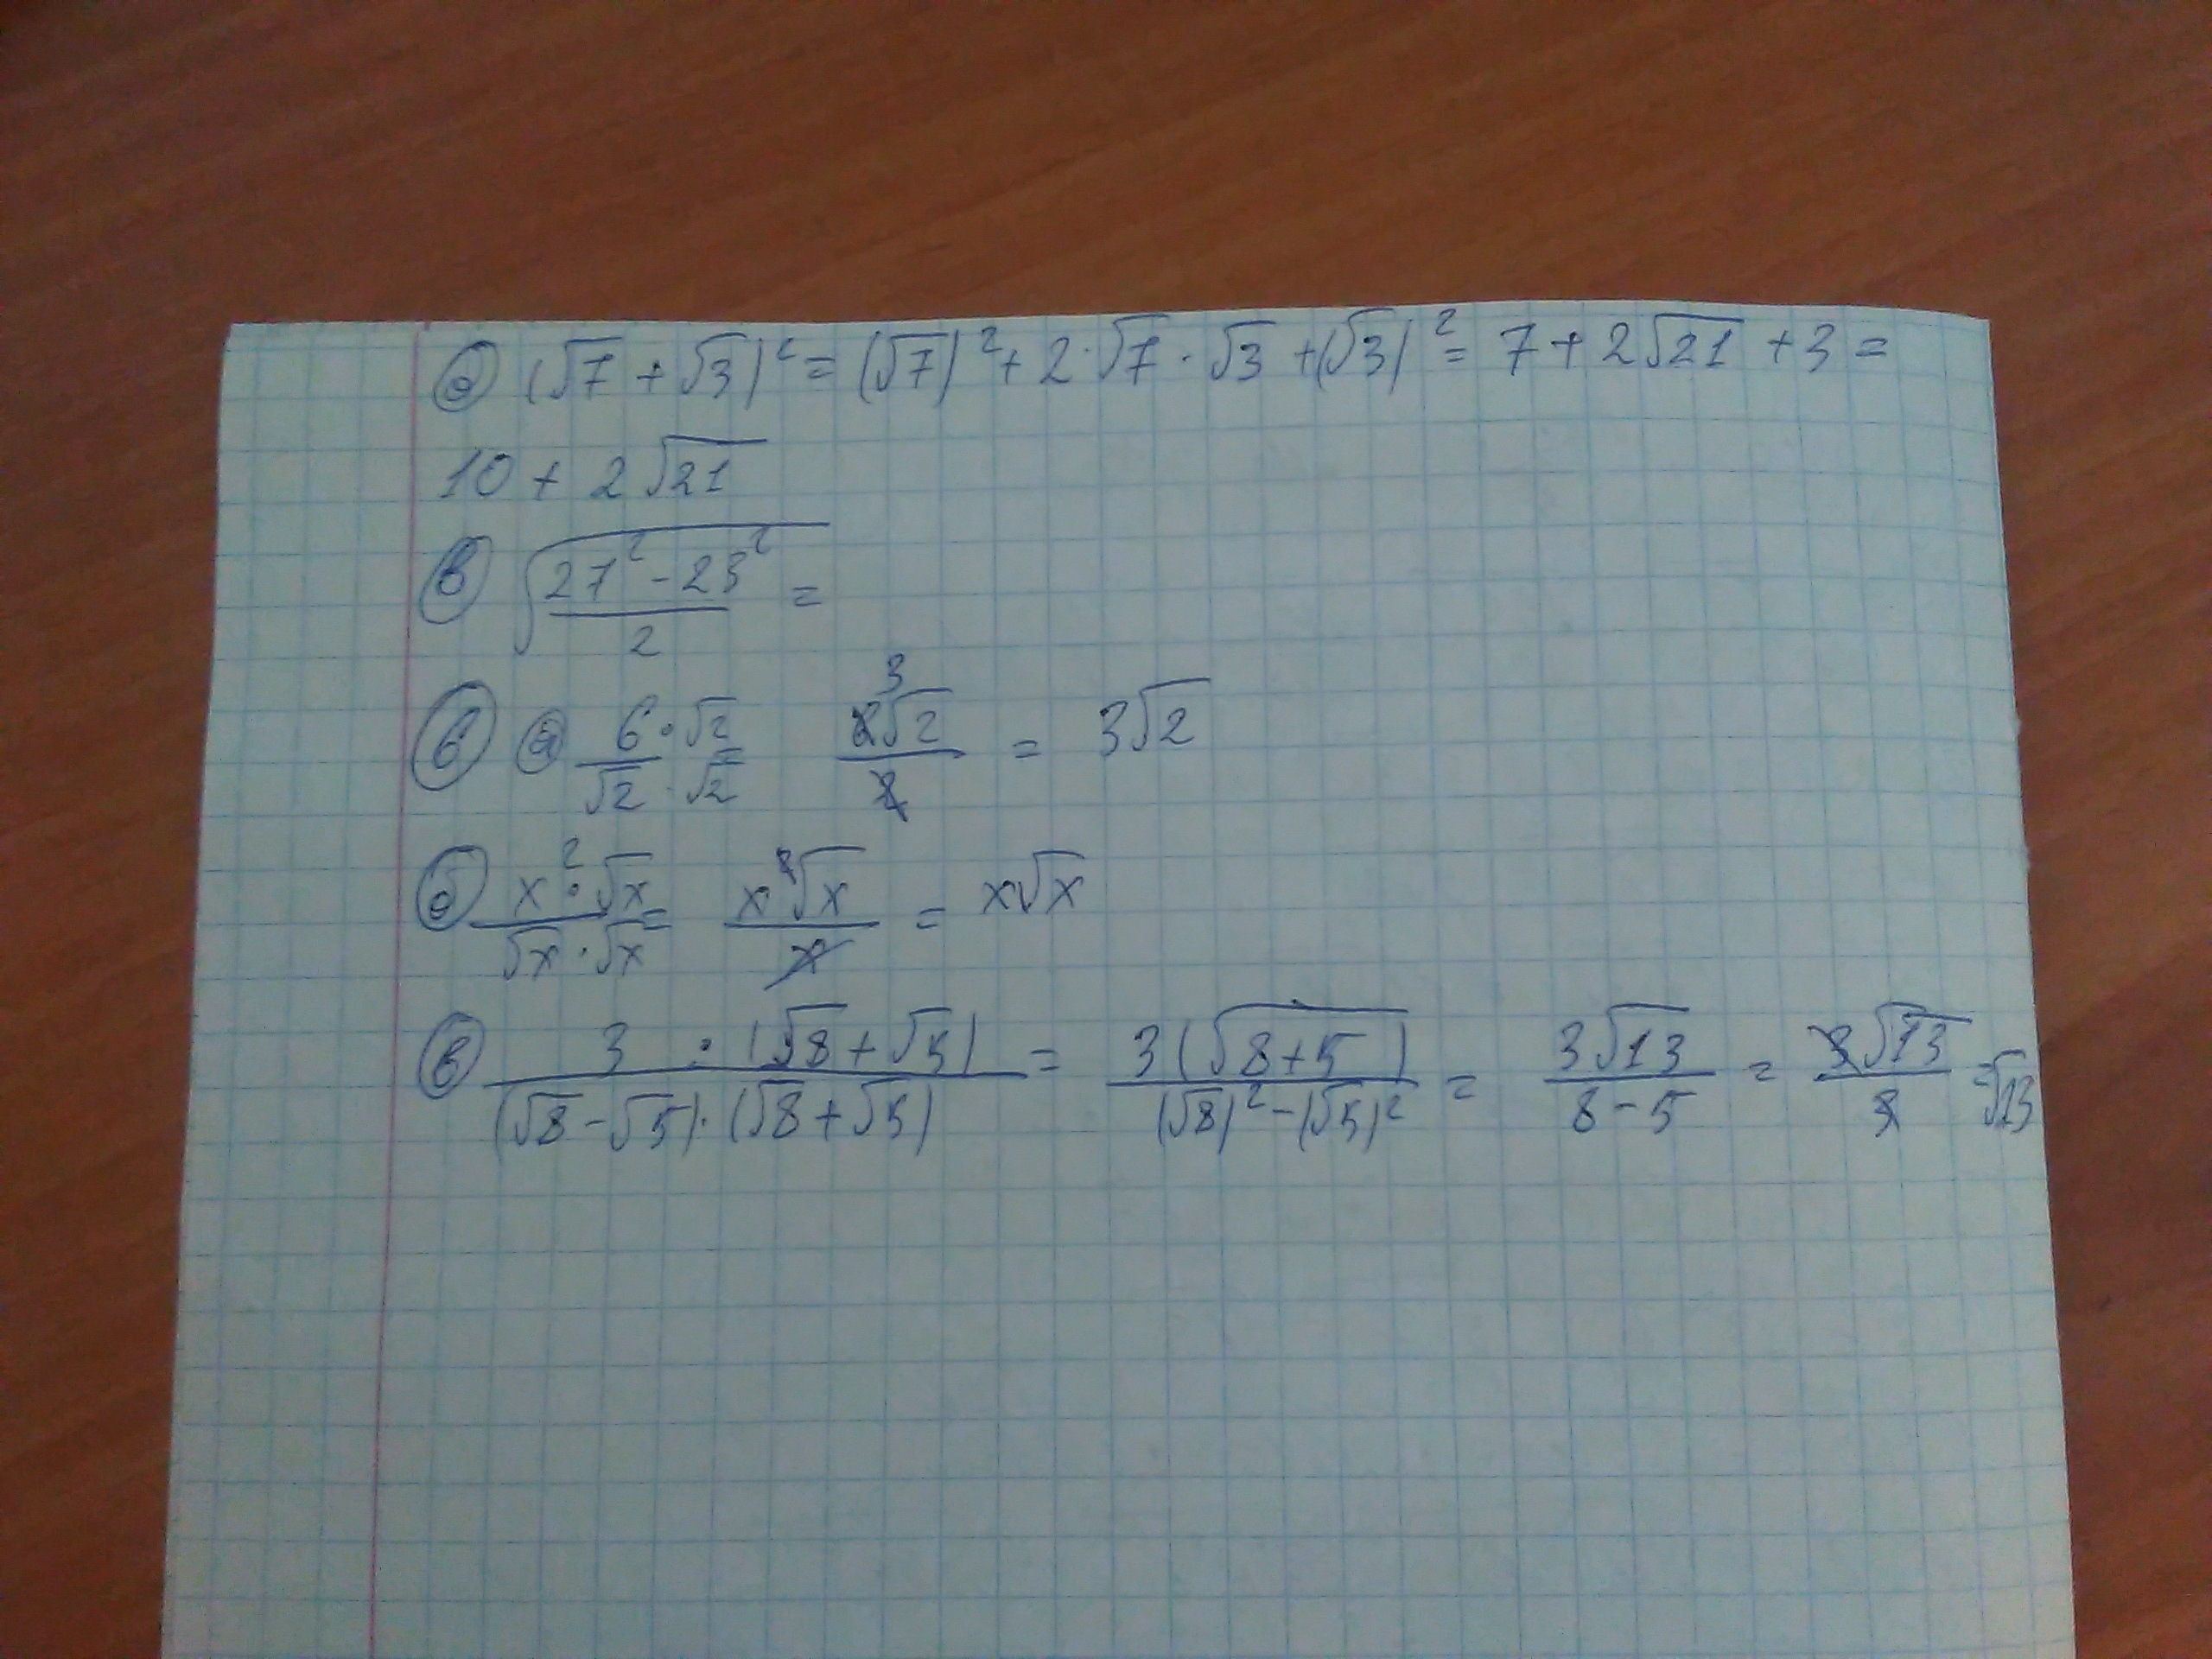 б (√7 + √3)² = (√7)² + 2·√7·√3 + (√3)² = 7 + 2√21 + 3 =
10 + 2√21
в √((27² - 23²)/2) =
6 а (6·√2)/(√2·√2) = (6√2)/2 3 = 3√2
б (x²·√x)/(√x·√x) = (x²√x)/x = x√x
в (3·(√8 + √5))/((√8 - √5)·(√8 + √5)) = (3(√(8+5)))/((√8)² - (√5)²) = (3√13)/(8 - 5) = (3√13)/3 = √13